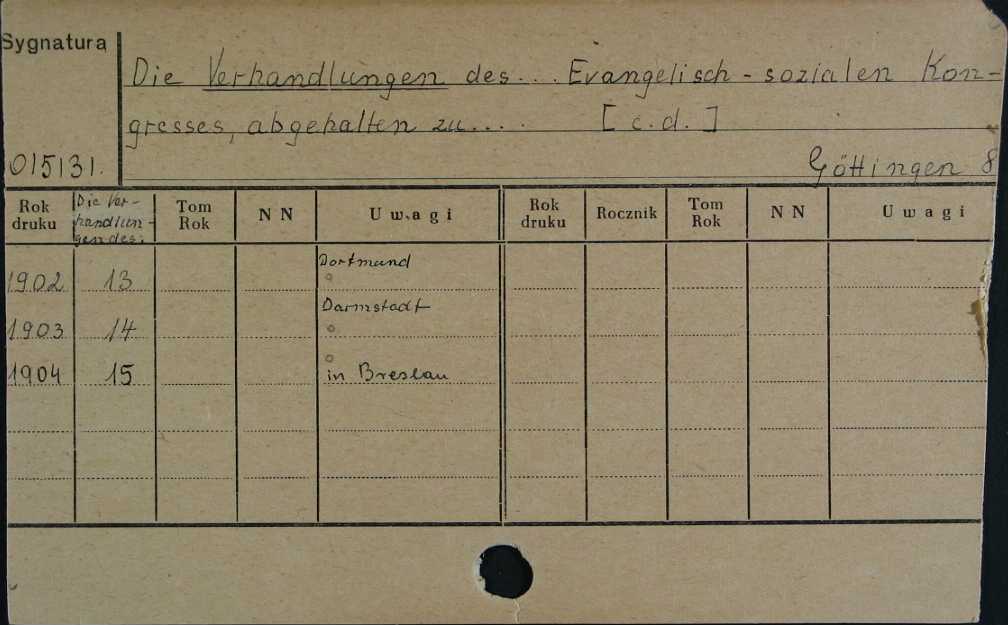 Sygnatura
Die Verhandlungen des... Evangelisch-sozialen Kon-
gresses, abgehalten zu.... [c.d.]
015131.
Göttingen 8
Rok druku Die Ver-handlun-gen des: Tom Rok NN Uwagi Rok druku Rocznik Tom Rok NN Uwagi
1902 13 Dortmund
1903 14 Darmstadt
1904 15 in Breslau